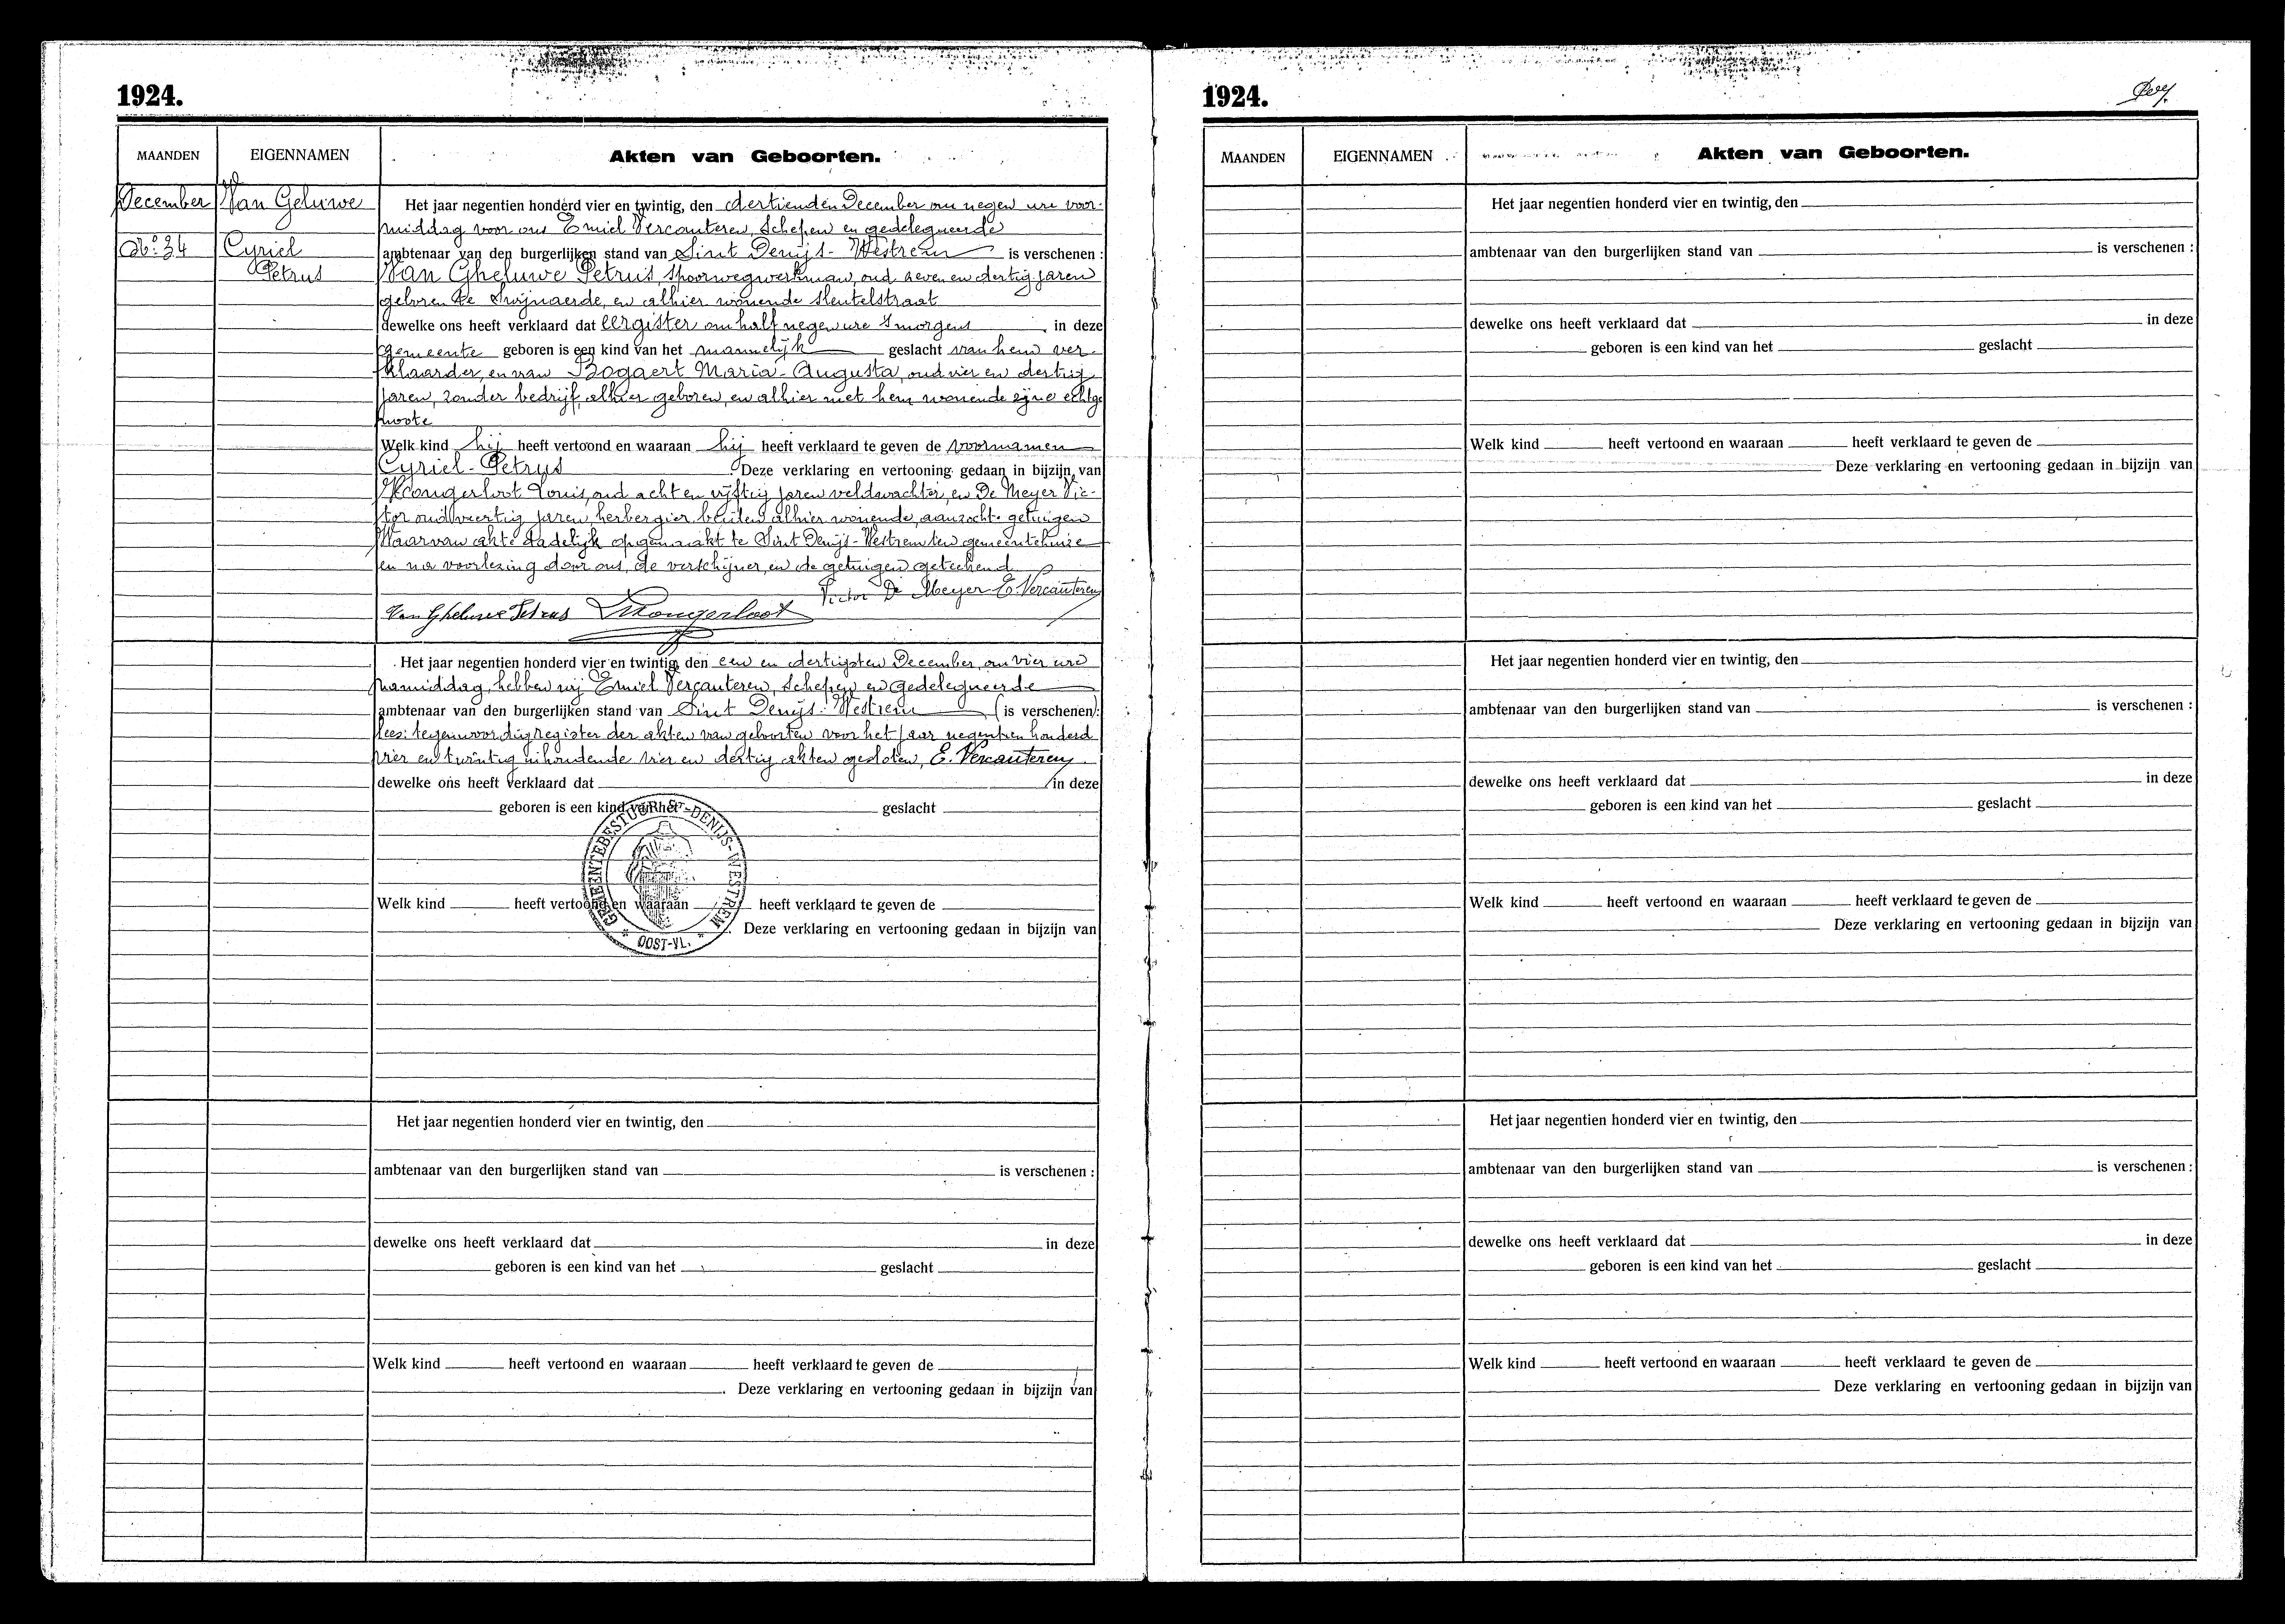 1924.
MAANDEN EIGENNAMEN Akten van Geboorten.
December Van Geluwe Het jaar negentien honderd vier en twintig, den dertienden December om negen ure voor-
middag voor ons Emiel Vercauteren, Schepen en gedelegueerde
No. 34 Cyriel ambtenaar van den burgerlijken stand van Sint Denijs-Westrem is verschenen :
Petrus Van Gheluwe Petrus, spoorwegwerkman, oud zeven en dertig jaren
geboren te Swijnaerde, en alhier wonende Sleutelstraat
dewelke ons heeft verklaard dat eergister om half negen ure 's morgens in deze
gemeente geboren is een kind van het mannelijk geslacht van hem ver-
klaarder, en van Bogaert Maria-Augusta, oud vier en dertig
jaren, zonder bedrijf, alhier geboren, en alhier met hem wonende zijne echtge
noote
Welk kind hij heeft vertoond en waaraan hij heeft verklaard te geven de voornamen
Cyriel-Petrus Deze verklaring en vertooning gedaan in bijzijn van
Louis, oud acht en vijftig jaren veldwachter, en De Meyer Vic-
tor oud veertig jaren, herbergier, beiden alhier wonende, aanzochte getuigen
Waarvan akte dadelijk opgemaakt te Sint Denijs-Westrem ten gemeentehuize
en na voorlezing door ons, de verschijner, en de getuigen geteekend
Victor De Meyer E. Vercauteren
Van Gheluwe Petrus
Het jaar negentien honderd vier en twintig, den een en dertigsten December, om vier ure
namiddag, hebben wij Emiel Vercauteren, Schepen en gedelegueerde
ambtenaar van den burgerlijken stand van Sint Denijs-Westrem (is verschenen):
lees: tegenwoordig register der akten van geboorten voor het jaar negentien honderd
vier en twintig inhoudende vier en dertig akten gesloten, E. Vercauteren
dewelke ons heeft verklaard dat in deze
geboren is een kind van het geslacht
GEMEENTEBESTUUR ST-DENIJS-WESTREM
* OOST-VL. *
Welk kind heeft vertoond en waaraan heeft verklaard te geven de
. Deze verklaring en vertooning gedaan in bijzijn van
Het jaar negentien honderd vier en twintig, den
ambtenaar van den burgerlijken stand van is verschenen :
dewelke ons heeft verklaard dat in deze
geboren is een kind van het geslacht
Welk kind heeft vertoond en waaraan heeft verklaard te geven de
. Deze verklaring en vertooning gedaan in bijzijn van
1924.
MAANDEN EIGENNAMEN Akten van Geboorten.
Het jaar negentien honderd vier en twintig, den
ambtenaar van den burgerlijken stand van is verschenen :
dewelke ons heeft verklaard dat in deze
geboren is een kind van het geslacht
Welk kind heeft vertoond en waaraan heeft verklaard te geven de
Deze verklaring en vertooning gedaan in bijzijn van
Het jaar negentien honderd vier en twintig, den
ambtenaar van den burgerlijken stand van is verschenen :
dewelke ons heeft verklaard dat in deze
geboren is een kind van het geslacht
Welk kind heeft vertoond en waaraan heeft verklaard te geven de
Deze verklaring en vertooning gedaan in bijzijn van
Het jaar negentien honderd vier en twintig, den
ambtenaar van den burgerlijken stand van is verschenen :
dewelke ons heeft verklaard dat in deze
geboren is een kind van het geslacht
Welk kind heeft vertoond en waaraan heeft verklaard te geven de
Deze verklaring en vertooning gedaan in bijzijn van